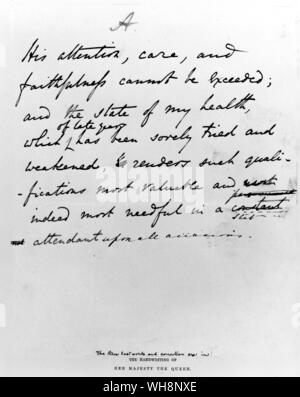 A
His attention, care, and
faithfulness cannot be exceeded;
and the state of my health,
of late years
which, has been sorely tried and
weakened renders such quali-
-fications most valuable and
indeed most needful in a constant
attendant upon all occasions.
The three last words and correction are in
THE HANDWRITING OF
HER MAJESTY THE QUEEN.
alamy
alamy
Image ID: WH8NXE
www.alamy.com